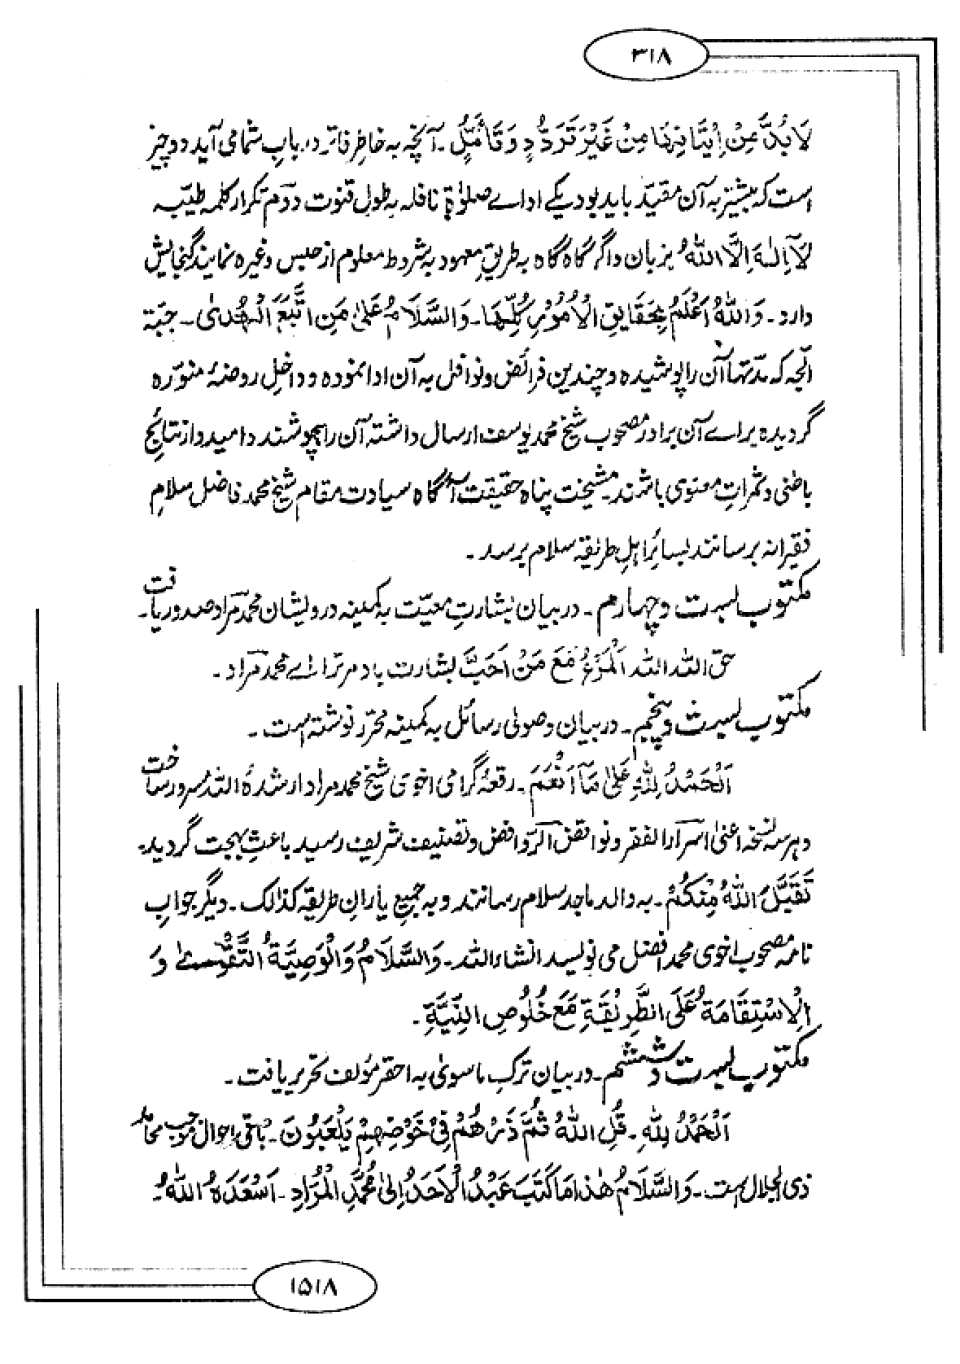 ۳۱۸
لَا بُدَّ مِنْ اِتْيَانِهَا مِنْ غَيْرِ تَرَدُّدٍ وَتَأَمُّلٍ۔ آنچه به خاطر فاتر در باب شما می آید دو چیز
است که بیشتر به آن مقید باید بود یکے ادائے صلوٰة نافله به طول قنوت دوم تکرار کلمه طیبه
لَآ اِلٰهَ اِلَّا اللهُ بزبان و اگر گاه گاه به طریق معهود به شروط معلوم از حبس وغیره نمایند گنجایش
دارد۔ وَاللهُ اَعْلَمُ بِحَقَایِقِ الْاُمُوْرِ کُلِّهَا۔ وَالسَّلَامُ عَلیٰ مَنِ اتَّبَعَ الْهُدیٰ۔ جبّة
الجه که مدتها آن را پوشیده و چندین فرائض و نوافل به آن ادا نموده و داخل روضۀ منوّره
گردیده برائے آن برادر مصحوب شیخ محمد یوسف ارسال داشته آن را بپوشند و امیدوار نتائج
باطنی و ثمراتِ معنوی باشند۔ مشیخت پناه حقیقت آگاه سیادت مقام شیخ محمد فاضل سلام
فقیرانه برسانند بسائر اهل طریقه سلام برسد۔
مکتوب بست و چهارم۔ در بیان بشارتِ معیّت به کمینه درویشان محمد مراد صدور یافت۔
حق الله الله اَلْمَرْءُ مَعَ مَنْ اَحَبَّ بشارت باد مر ترا اے محمد مراد۔
مکتوب بست و پنجم۔ در بیان وصولی رسائل به کمینه محرر نوشته است۔
اَلْحَمْدُ لِلهِ عَلیٰ مَآ اَنْعَمَ۔ رقعۀ گرامی اخوی شیخ محمد مراد ارشدهُ الله مسرور ساخت
و هر سه نسخه اعنی اسرار الفقر و نواقض الروافض و تصنیف شریف رسید باعثِ بهجت گردید۔
تَقَبَّلَ اللهُ مِنْکُمْ۔ به والد ماجد سلام رسانند و به جمیع یاران طریقه کذالک۔ دیگر جواب
نامه مصحوب اخوی محمد افضل می نویسد انشاء الله۔ وَالسَّلَامُ وَالْوَصِیَّةُ التَّقْویٰ وَ
الْاِسْتِقَامَةُ عَلَی الطَّرِیْقَةِ مَعَ خُلُوْصِ النِّیَّةِ۔
مکتوب بست و ششم۔ در بیان ترک ماسویٰ به احقر مؤلف تحریر یافت۔
اَلْحَمْدُ لِلهِ۔ قُلِ اللهُ ثُمَّ ذَرْهُمْ فِیْ خَوْضِهِمْ یَلْعَبُوْنَ۔ باقی احوال موجب محامد
ذی الجلال است۔ وَالسَّلَامُ هٰذَا مَا کَتَبَ عَبْدُ الْاَحَدُ اِلیٰ مُحَمَّدِ الْمُرَادِ۔ اَسْعَدَهُ اللهُ۔
۱۵۱۸